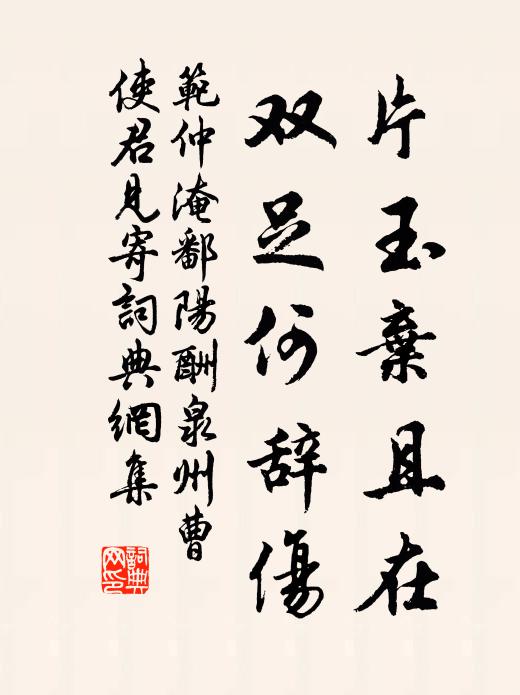 片玉棄且在
双足何辞傷
範仲淹鄱陽酬泉州曹
使君見寄詞典網集
詞典网印